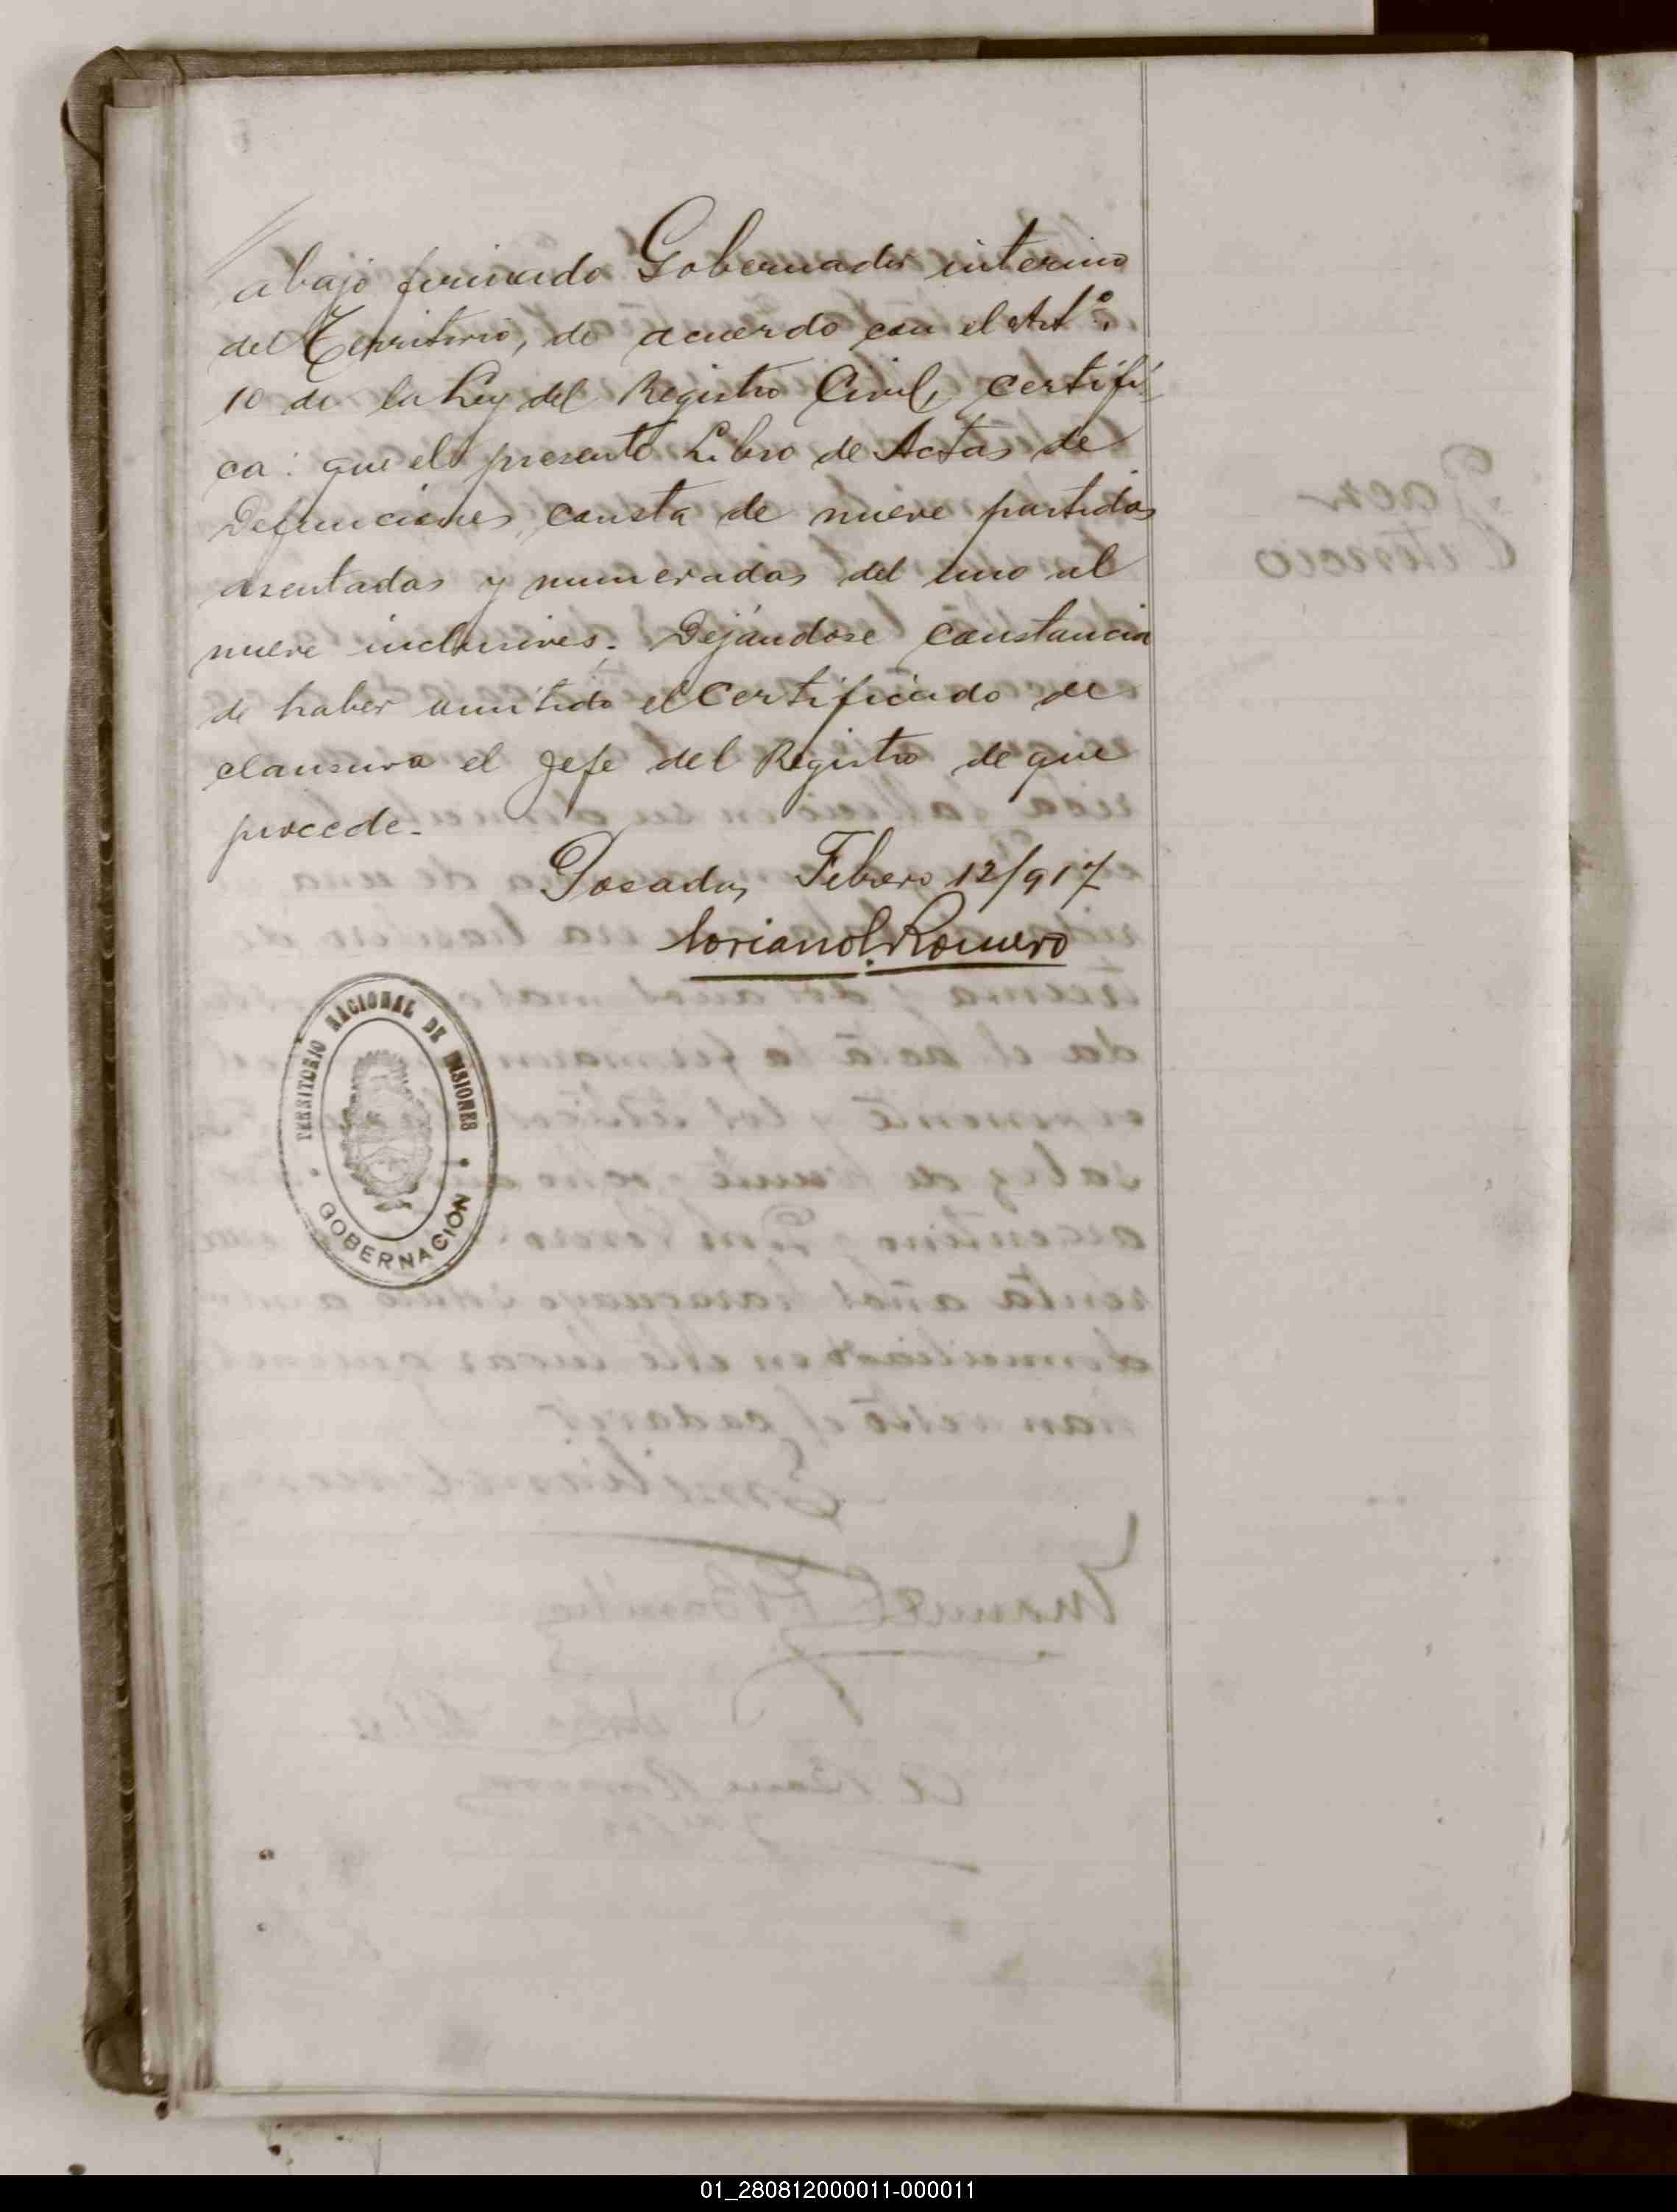 abajo firmado Gobernador interino
del Territorio, de acuerdo con el Artº.
10 de la Ley del Registro Civil, certifi-
ca: que el presente Libro de Actas de
Defunciones, consta de nueve partidas
asentadas y numeradas del uno al
nueve inclusives. Dejándose constancia
de haber omitido el certificado de
clausura el Jefe del Registro de que
procede.
Posadas, Febrero 12/917
Romero
TERRITORIO NACIONAL DE MISIONES
GOBERNACIÓN
01_280812000011-000011